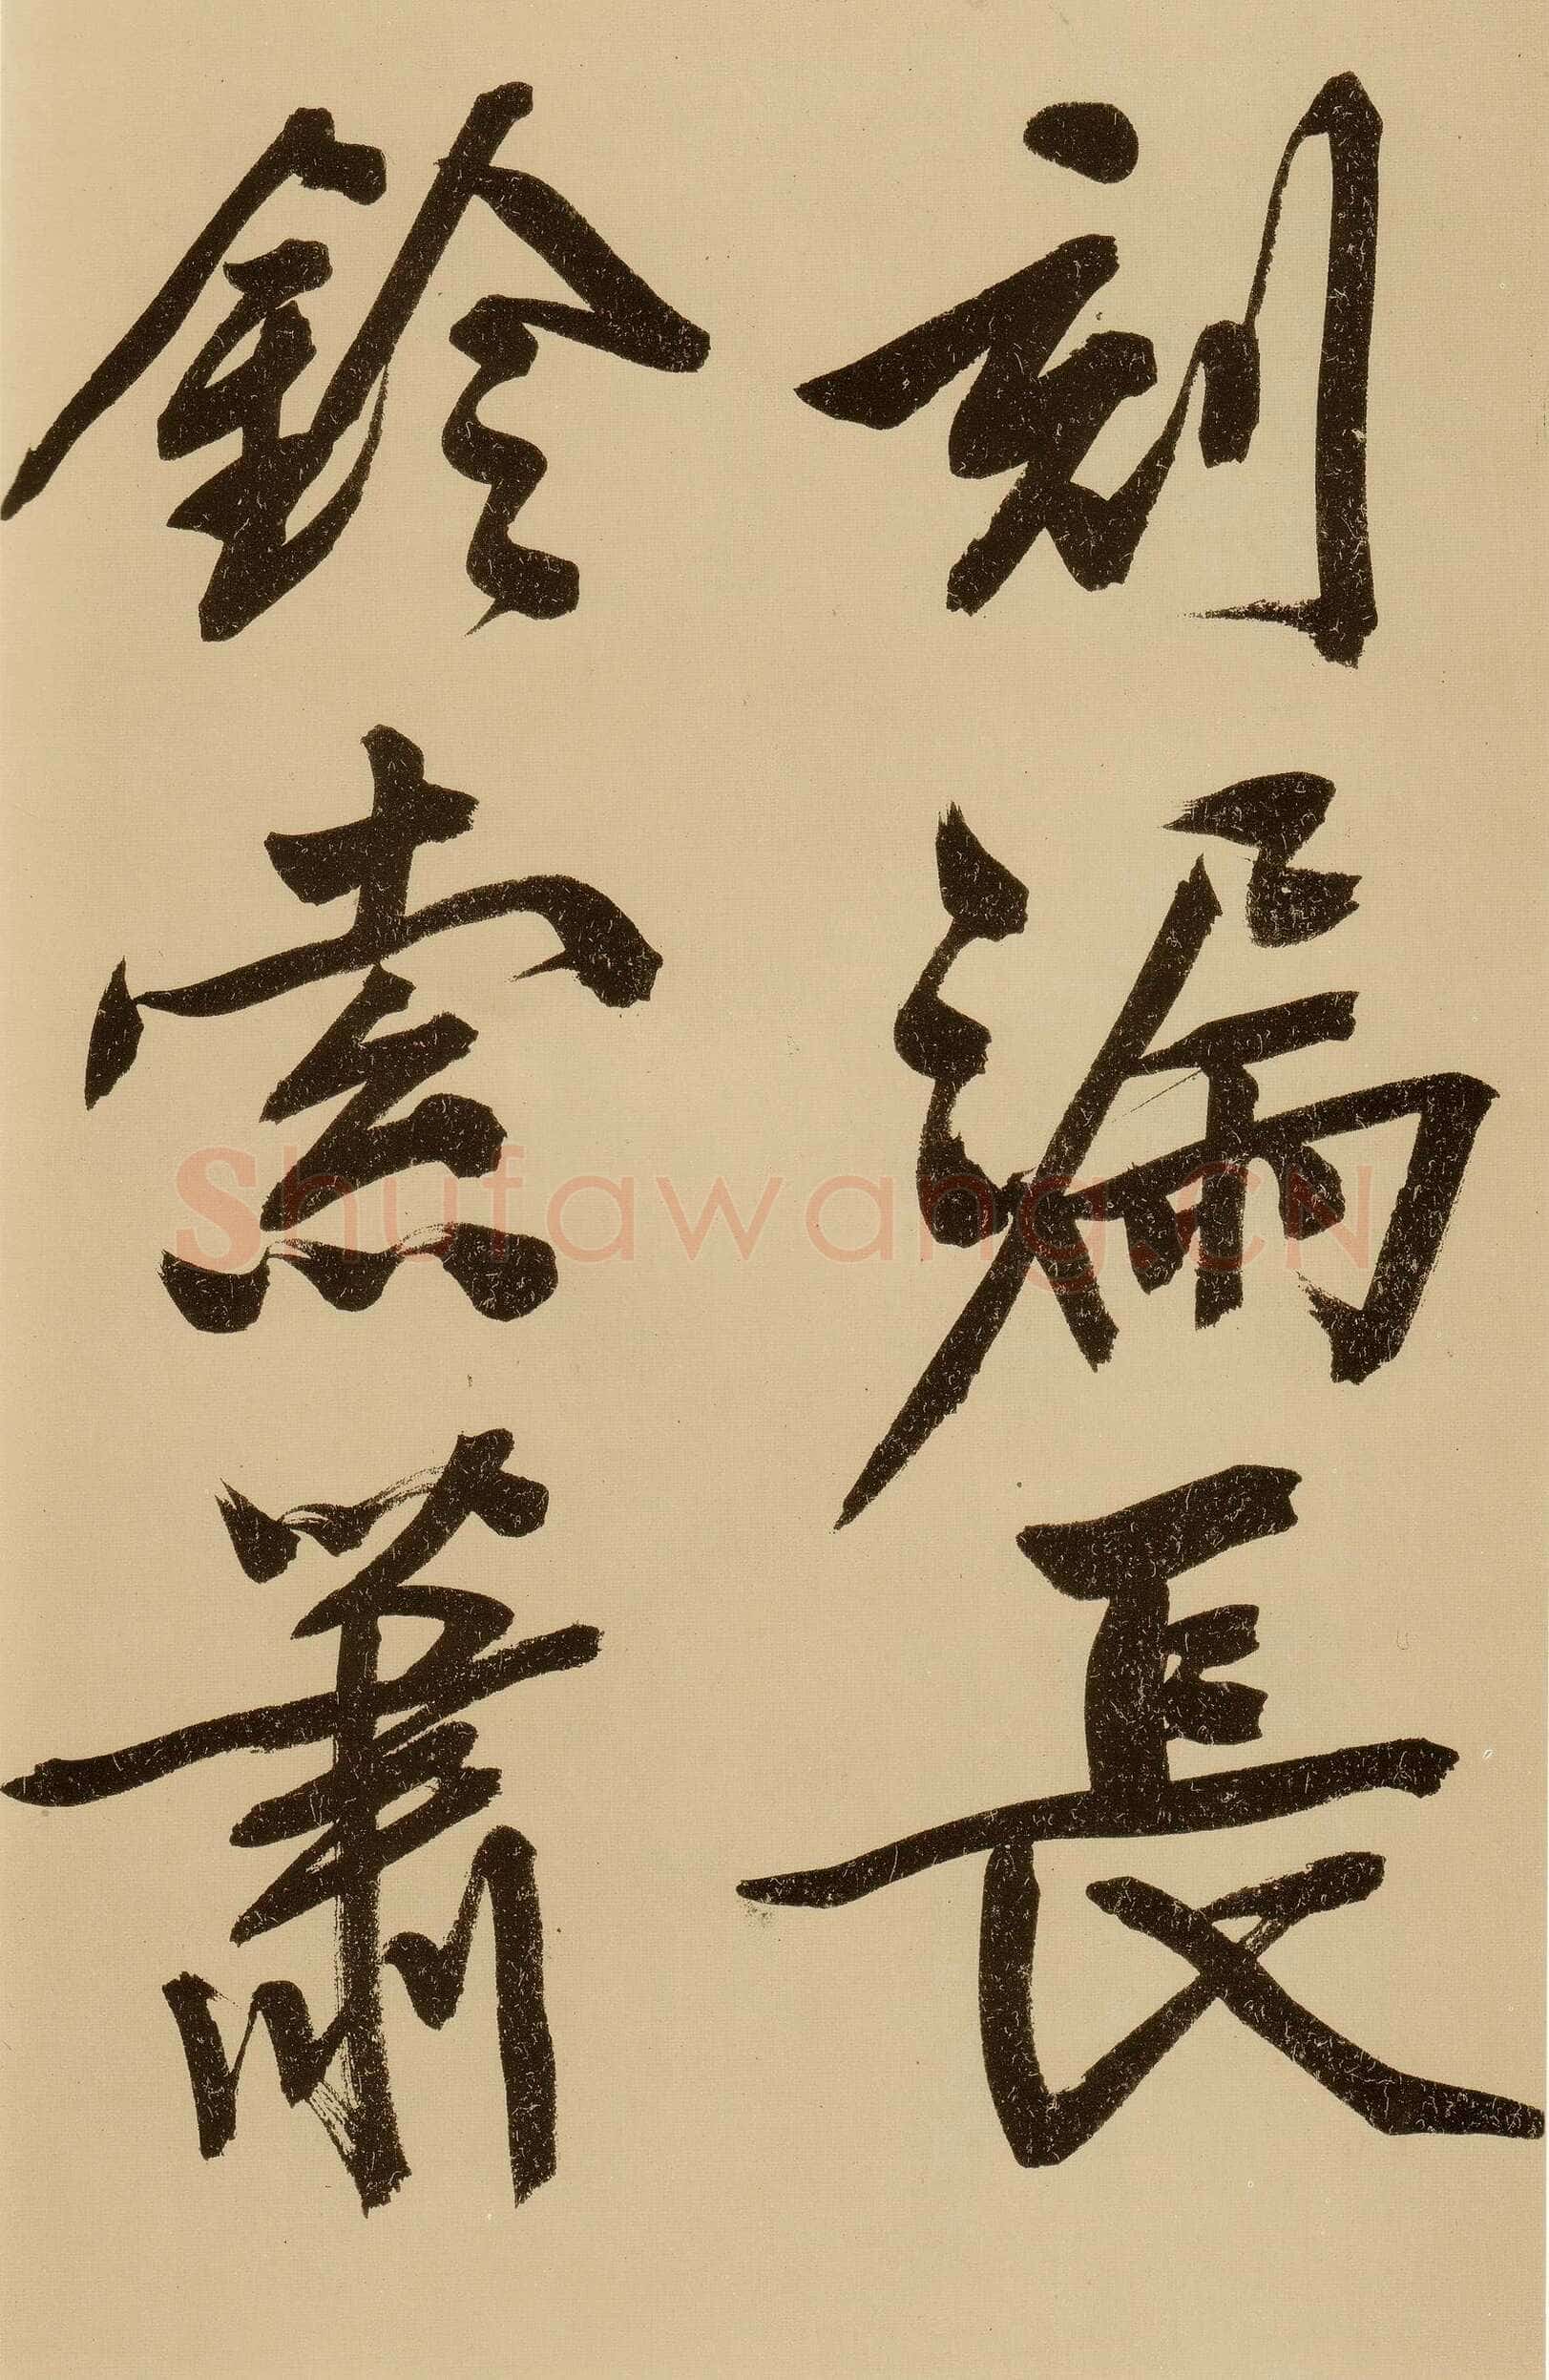 刻漏長
鈴索蕭
Shufawang.CN